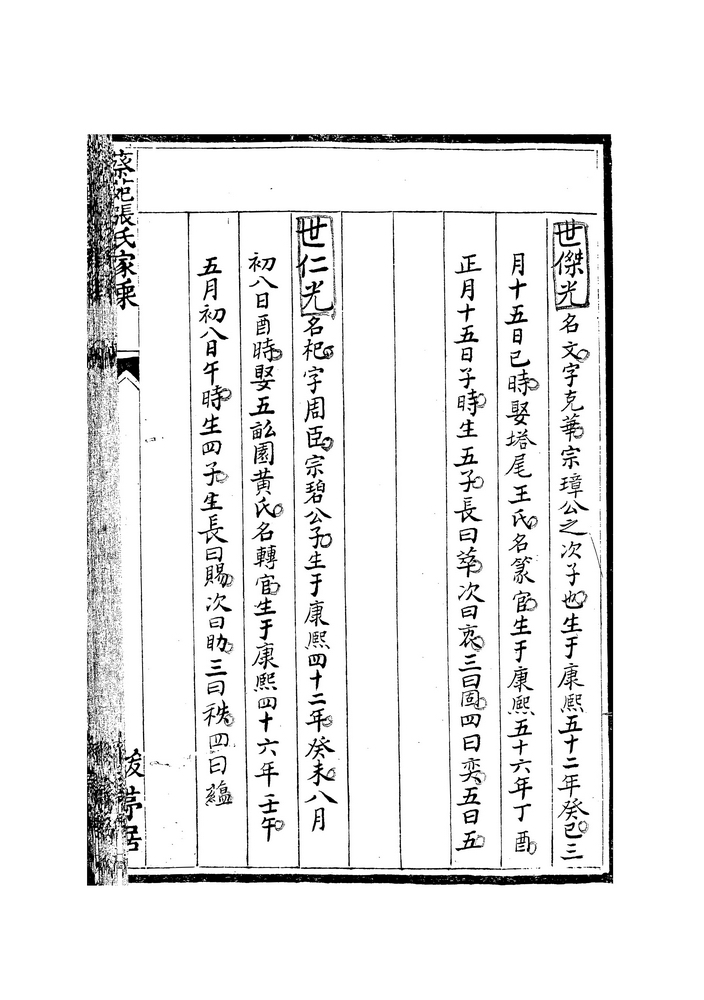 世傑光名文字克華宗璋公之次子也生于康熙五十二年癸巳三
月十五日巳時娶塔尾王氏名篆官生于康熙五十六年丁酉
正月十五日子時生五子長曰萃次曰裒三曰固四曰奕五曰五
世仁光名杞字周臣宗碧公子生于康熙四十二年癸未八月
初八日酉時娶五畆園黄氏名轉官生于康熙四十六年壬午
五月初八日午時生四子生長曰賜次曰助三曰秩四曰蘊
張氏家乘
居